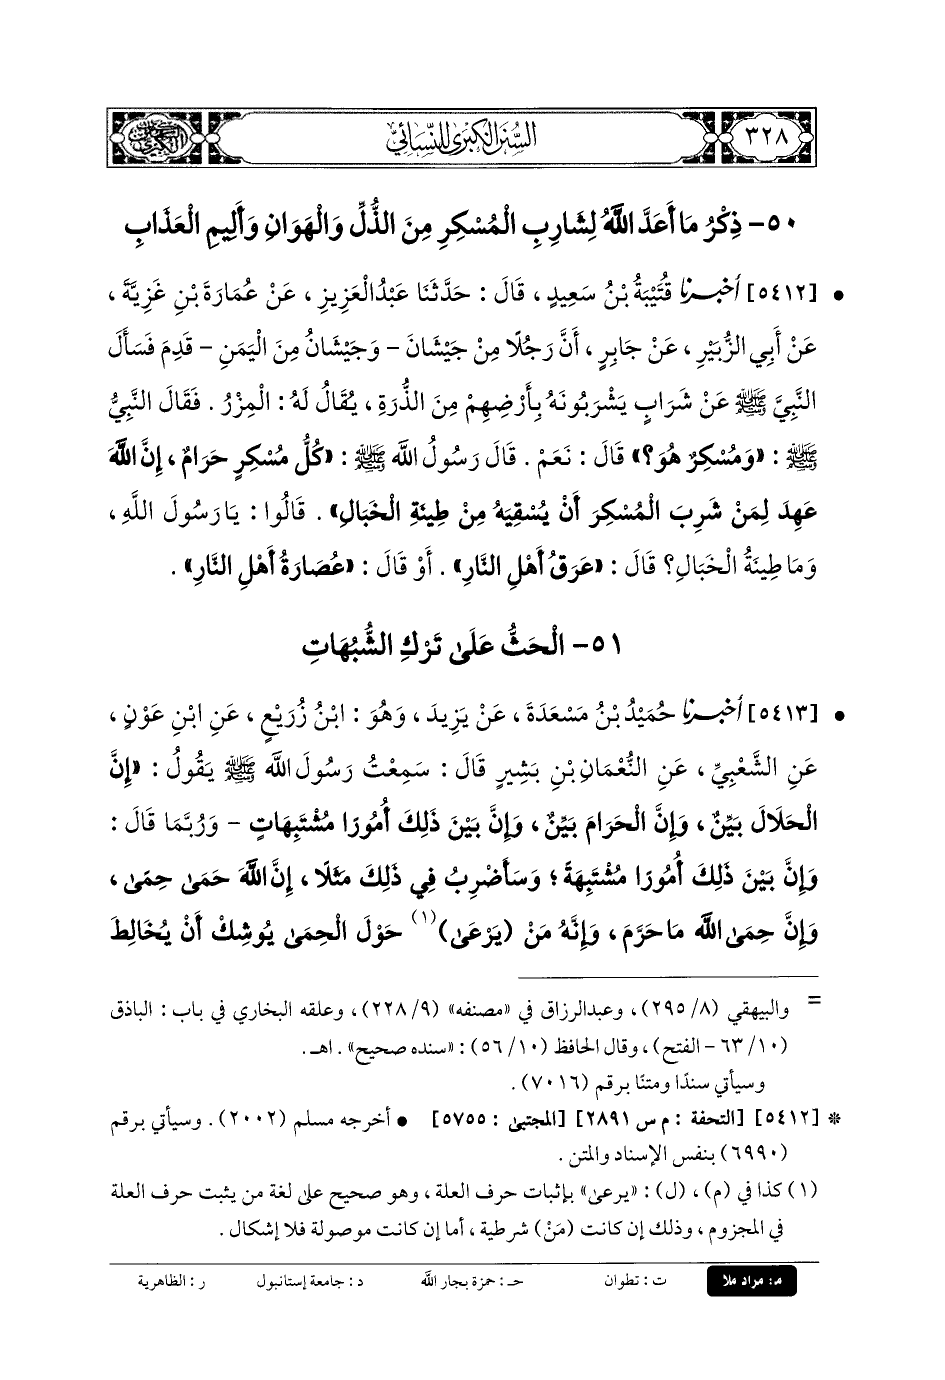 ٣٢٨
السُّنَنُ الكُبْرَىٰ لِلنَّسَائِيِّ
٥٠- ذِكْرُ مَا أَعَدَّ اللَّهُ لِشَارِبِ الْمُسْكِرِ مِنَ الذُّلِّ وَالْهَوَانِ وَأَلِيمِ الْعَذَابِ
• [٥٤١٢] أَخْبَرَنَا قُتَيْبَةُ بْنُ سَعِيدٍ، قَالَ: حَدَّثَنَا عَبْدُالْعَزِيزِ، عَنْ عُمَارَةَ بْنِ غَزِيَّةَ،
عَنْ أَبِي الزُّبَيْرِ، عَنْ جَابِرٍ، أَنَّ رَجُلًا مِنْ جَيْشَانَ - وَجَيْشَانُ مِنَ الْيَمَنِ - قَدِمَ فَسَأَلَ
النَّبِيَّ ﷺ عَنْ شَرَابٍ يَشْرَبُونَهُ بِأَرْضِهِمْ مِنَ الذُّرَةِ، يُقَالُ لَهُ: الْمِزْرُ. فَقَالَ النَّبِيُّ
ﷺ: «وَمُسْكِرٌ هُوَ؟» قَالَ: نَعَمْ. قَالَ رَسُولُ اللَّه ﷺ: «كُلُّ مُسْكِرٍ حَرَامٌ، إِنَّ اللَّهَ
عَهِدَ لِمَنْ شَرِبَ الْمُسْكِرَ أَنْ يُسْقِيَهُ مِنْ طِينَةِ الْخَبَالِ». قَالُوا: يَا رَسُولَ اللَّهِ،
وَمَا طِينَةُ الْخَبَالِ؟ قَالَ: «عَرَقُ أَهْلِ النَّارِ». أَوْ قَالَ: «عُصَارَةُ أَهْلِ النَّارِ».
٥١- الْحَثُّ عَلَىٰ تَرْكِ الشُّبُهَاتِ
• [٥٤١٣] أَخْبَرَنَا حُمَيْدُ بْنُ مَسْعَدَةَ، عَنْ يَزِيدَ، وَهُوَ: ابْنُ زُرَيْعٍ، عَنِ ابْنِ عَوْنٍ،
عَنِ الشَّعْبِيِّ، عَنِ النُّعْمَانِ بْنِ بَشِيرٍ قَالَ: سَمِعْتُ رَسُولَ اللَّه ﷺ يَقُولُ: «إِنَّ
الْحَلَالَ بَيِّنٌ، وَإِنَّ الْحَرَامَ بَيِّنٌ، وَإِنَّ بَيْنَ ذَلِكَ أُمُورًا مُشْتَبِهَاتٍ - وَرُبَّمَا قَالَ:
وَإِنَّ بَيْنَ ذَلِكَ أُمُورًا مُشْتَبِهَةً؛ وَسَأَضْرِبُ فِي ذَلِكَ مَثَلًا، إِنَّ اللَّهَ حَمَىٰ حِمًىٰ،
وَإِنَّ حِمَى اللَّه مَا حَرَّمَ، وَإِنَّهُ مَنْ (يَرْعَىٰ)(١) حَوْلَ الْحِمَىٰ يُوشِكُ أَنْ يُخَالِطَ
= والبيهقي (٨/ ٢٩٥)، وعبدالرزاق في «مصنفه» (٩/ ٢٢٨)، وعلقه البخاري في باب: الباذق
(١٠/ ٦٣ - الفتح)، وقال الحافظ (١٠/ ٥٦): «سنده صحيح». اهـ.
وسيأتي سندًا ومتنًا برقم (٧٠١٦).
* [٥٤١٢] [التحفة: م س ٢٨٩١] [المجتبى: ٥٧٥٥] • أخرجه مسلم (٢٠٠٢). وسيأتي برقم
(٦٩٩٠) بنفس الإسناد والمتن.
(١) كذا في (م)، (ل): «يرعى» بإثبات حرف العلة، وهو صحيح على لغة من يثبت حرف العلة
في المجزوم، وذلك إن كانت (مَنْ) شرطية، أما إن كانت موصولة فلا إشكال.
م: مراد ملا ت: تطوان حـ: حمزة بجار اللَّه د: جامعة إستانبول ر: الظاهرية